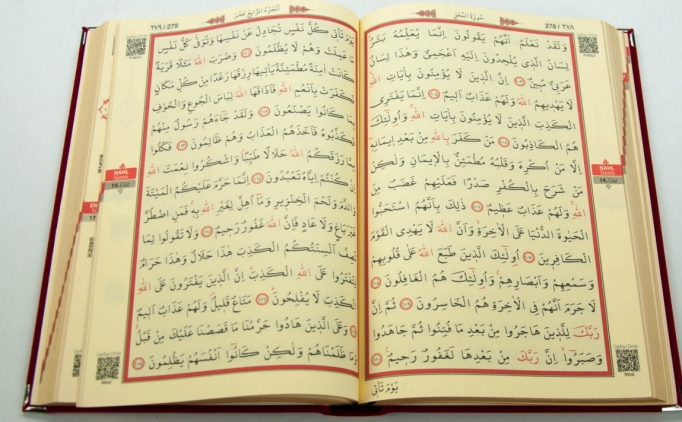 سورة النحل
278 / ٢٧٨
وَلَقَدْ نَعْلَمُ اَنَّهُمْ يَقُولُونَ اِنَّمَا يُعَلِّمُهُ بَشَرٌ
لِسَانُ الَّذ۪ى يُلْحِدُونَ اِلَيْهِ اَعْجَمِىٌّ وَهٰذَا لِسَانٌ
عَرَبِىٌّ مُب۪ينٌ ١٠٣ اِنَّ الَّذ۪ينَ لَا يُؤْمِنُونَ بِاٰيَاتِ اللّٰهِ
لَا يَهْد۪يهِمُ اللّٰهُ وَلَهُمْ عَذَابٌ اَل۪يمٌ ١٠٤ اِنَّمَا يَفْتَرِى
الْكَذِبَ الَّذ۪ينَ لَا يُؤْمِنُونَ بِاٰيَاتِ اللّٰهِ وَاُو۬لٰٓئِكَ
هُمُ الْكَاذِبُونَ ١٠٥ مَنْ كَفَرَ بِاللّٰهِ مِنْ بَعْدِ ا۪يمَانِه۪
اِلَّا مَنْ اُكْرِهَ وَقَلْبُهُ مُطْمَئِنٌّ بِالْا۪يمَانِ وَلٰكِنْ
مَنْ شَرَحَ بِالْكُفْرِ صَدْرًا فَعَلَيْهِمْ غَضَبٌ مِنَ
اللّٰهِ وَلَهُمْ عَذَابٌ عَظ۪يمٌ ١٠٦ ذٰلِكَ بِاَنَّهُمُ اسْتَحَبُّوا
الْحَيٰوةَ الدُّنْيَا عَلَى الْاٰخِرَةِ وَاَنَّ اللّٰهَ لَا يَهْدِى الْقَوْمَ
الْكَافِر۪ينَ ١٠٧ اُو۬لٰٓئِكَ الَّذ۪ينَ طَبَعَ اللّٰهُ عَلٰى قُلُوبِهِمْ
وَسَمْعِهِمْ وَاَبْصَارِهِمْ وَاُو۬لٰٓئِكَ هُمُ الْغَافِلُونَ ١٠٨
لَا جَرَمَ اَنَّهُمْ فِى الْاٰخِرَةِ هُمُ الْخَاسِرُونَ ١٠٩ ثُمَّ اِنَّ
رَبَّكَ لِلَّذ۪ينَ هَاجَرُوا مِنْ بَعْدِ مَا فُتِنُوا ثُمَّ جَاهَدُوا
وَصَبَرُوا اِنَّ رَبَّكَ مِنْ بَعْدِهَا لَغَفُورٌ رَح۪يمٌ ١١٠
يَوْمَ تَأْت۪ى
NAHL
Suresi
14. Cüz
Meal
الجزء الرابع عشر
٢٧٩ / 279
يَوْمَ تَأْت۪ى كُلُّ نَفْسٍ تُجَادِلُ عَنْ نَفْسِهَا وَتُوَفّٰى كُلُّ نَفْسٍ
مَا عَمِلَتْ وَهُمْ لَا يُظْلَمُونَ ١١١ وَضَرَبَ اللّٰهُ مَثَلًا قَرْيَةً
كَانَتْ اٰمِنَةً مُطْمَئِنَّةً يَأْت۪يهَا رِزْقُهَا رَغَدًا مِنْ كُلِّ مَكَانٍ
فَكَفَرَتْ بِاَنْعُمِ اللّٰهِ فَاَذَاقَهَا اللّٰهُ لِبَاسَ الْجُوعِ وَالْخَوْفِ
بِمَا كَانُوا يَصْنَعُونَ ١١٢ وَلَقَدْ جَاءَهُمْ رَسُولٌ مِنْهُمْ
فَكَذَّبُوهُ فَاَخَذَهُمُ الْعَذَابُ وَهُمْ ظَالِمُونَ ١١٣ فَكُلُوا
مِمَّا رَزَقَكُمُ اللّٰهُ حَلَالًا طَيِّبًا وَاشْكُرُوا نِعْمَتَ اللّٰهِ
اِنْ كُنْتُمْ اِيَّاهُ تَعْبُدُونَ ١١٤ اِنَّمَا حَرَّمَ عَلَيْكُمُ الْمَيْتَةَ
وَالدَّمَ وَلَحْمَ الْخِنْز۪يرِ وَمَا اُهِلَّ لِغَيْرِ اللّٰهِ بِه۪ فَمَنِ اضْطُرَّ
غَيْرَ بَاغٍ وَلَا عَادٍ فَاِنَّ اللّٰهَ غَفُورٌ رَح۪يمٌ ١١٥ وَلَا تَقُولُوا لِمَا
تَصِفُ اَلْسِنَتُكُمُ الْكَذِبَ هٰذَا حَلَالٌ وَهٰذَا حَرَامٌ
لِتَفْتَرُوا عَلَى اللّٰهِ الْكَذِبَ اِنَّ الَّذ۪ينَ يَفْتَرُونَ عَلَى اللّٰهِ
الْكَذِبَ لَا يُفْلِحُونَ ١١٦ مَتَاعٌ قَل۪يلٌ وَلَهُمْ عَذَابٌ اَل۪يمٌ
١١٧ وَعَلَى الَّذ۪ينَ هَادُوا حَرَّمْنَا مَا قَصَصْنَا عَلَيْكَ مِنْ قَبْلُ
وَمَا ظَلَمْنَاهُمْ وَلٰكِنْ كَانُوا اَنْفُسَهُمْ يَظْلِمُونَ ١١٨
NAHL
Suresi
14. Cüz
Meal